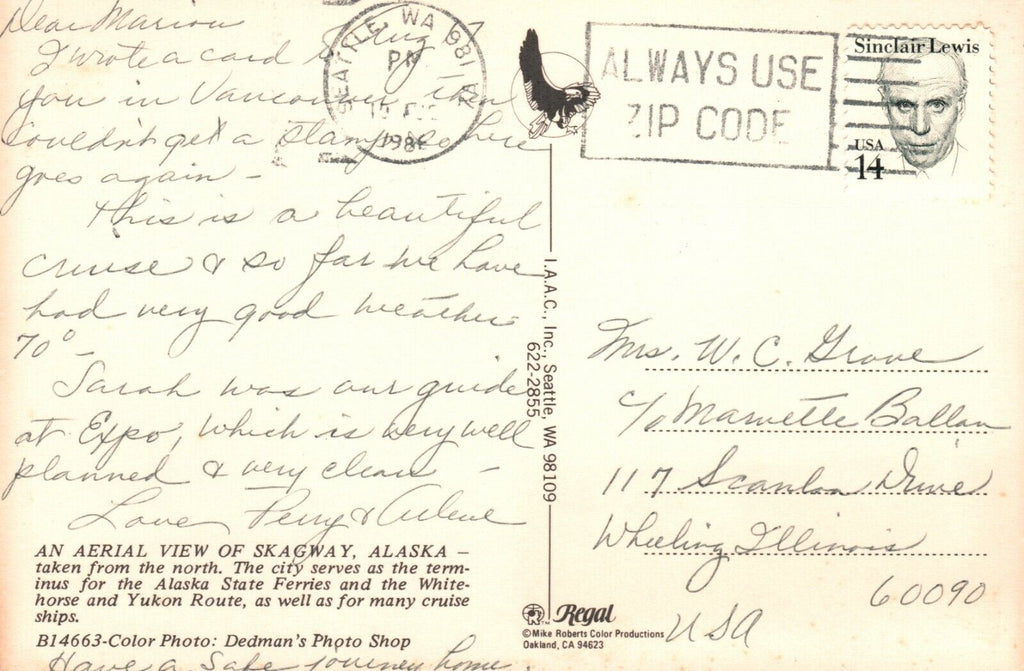 Dear Marion
I wrote a card to
you in Vancouver, then
couldn't get a stamp so here
goes again -
This is a beautiful
cruise & so far we have
had very good weather
70° -
Sarah was our guide
at Expo, which is very well
planned & very clean -
Love, Perry & Arlene
AN AERIAL VIEW OF SKAGWAY, ALASKA –
taken from the north. The city serves as the term-
inus for the Alaska State Ferries and the White-
horse and Yukon Route, as well as for many cruise
ships.
B14663-Color Photo: Dedman's Photo Shop
Have a safe journey home.
SEATTLE, WA 981
PM
1986
ALWAYS USE
ZIP CODE
Sinclair Lewis
USA
14
I.A.A.C., Inc., Seattle, WA 98109
622-2855
Mrs. W. C. Grove
c/o Marvette Ballan
117 Scanlon Drive
Wheeling Illinois
60090
USA
Regal
©Mike Roberts Color Productions
Oakland, CA 94623